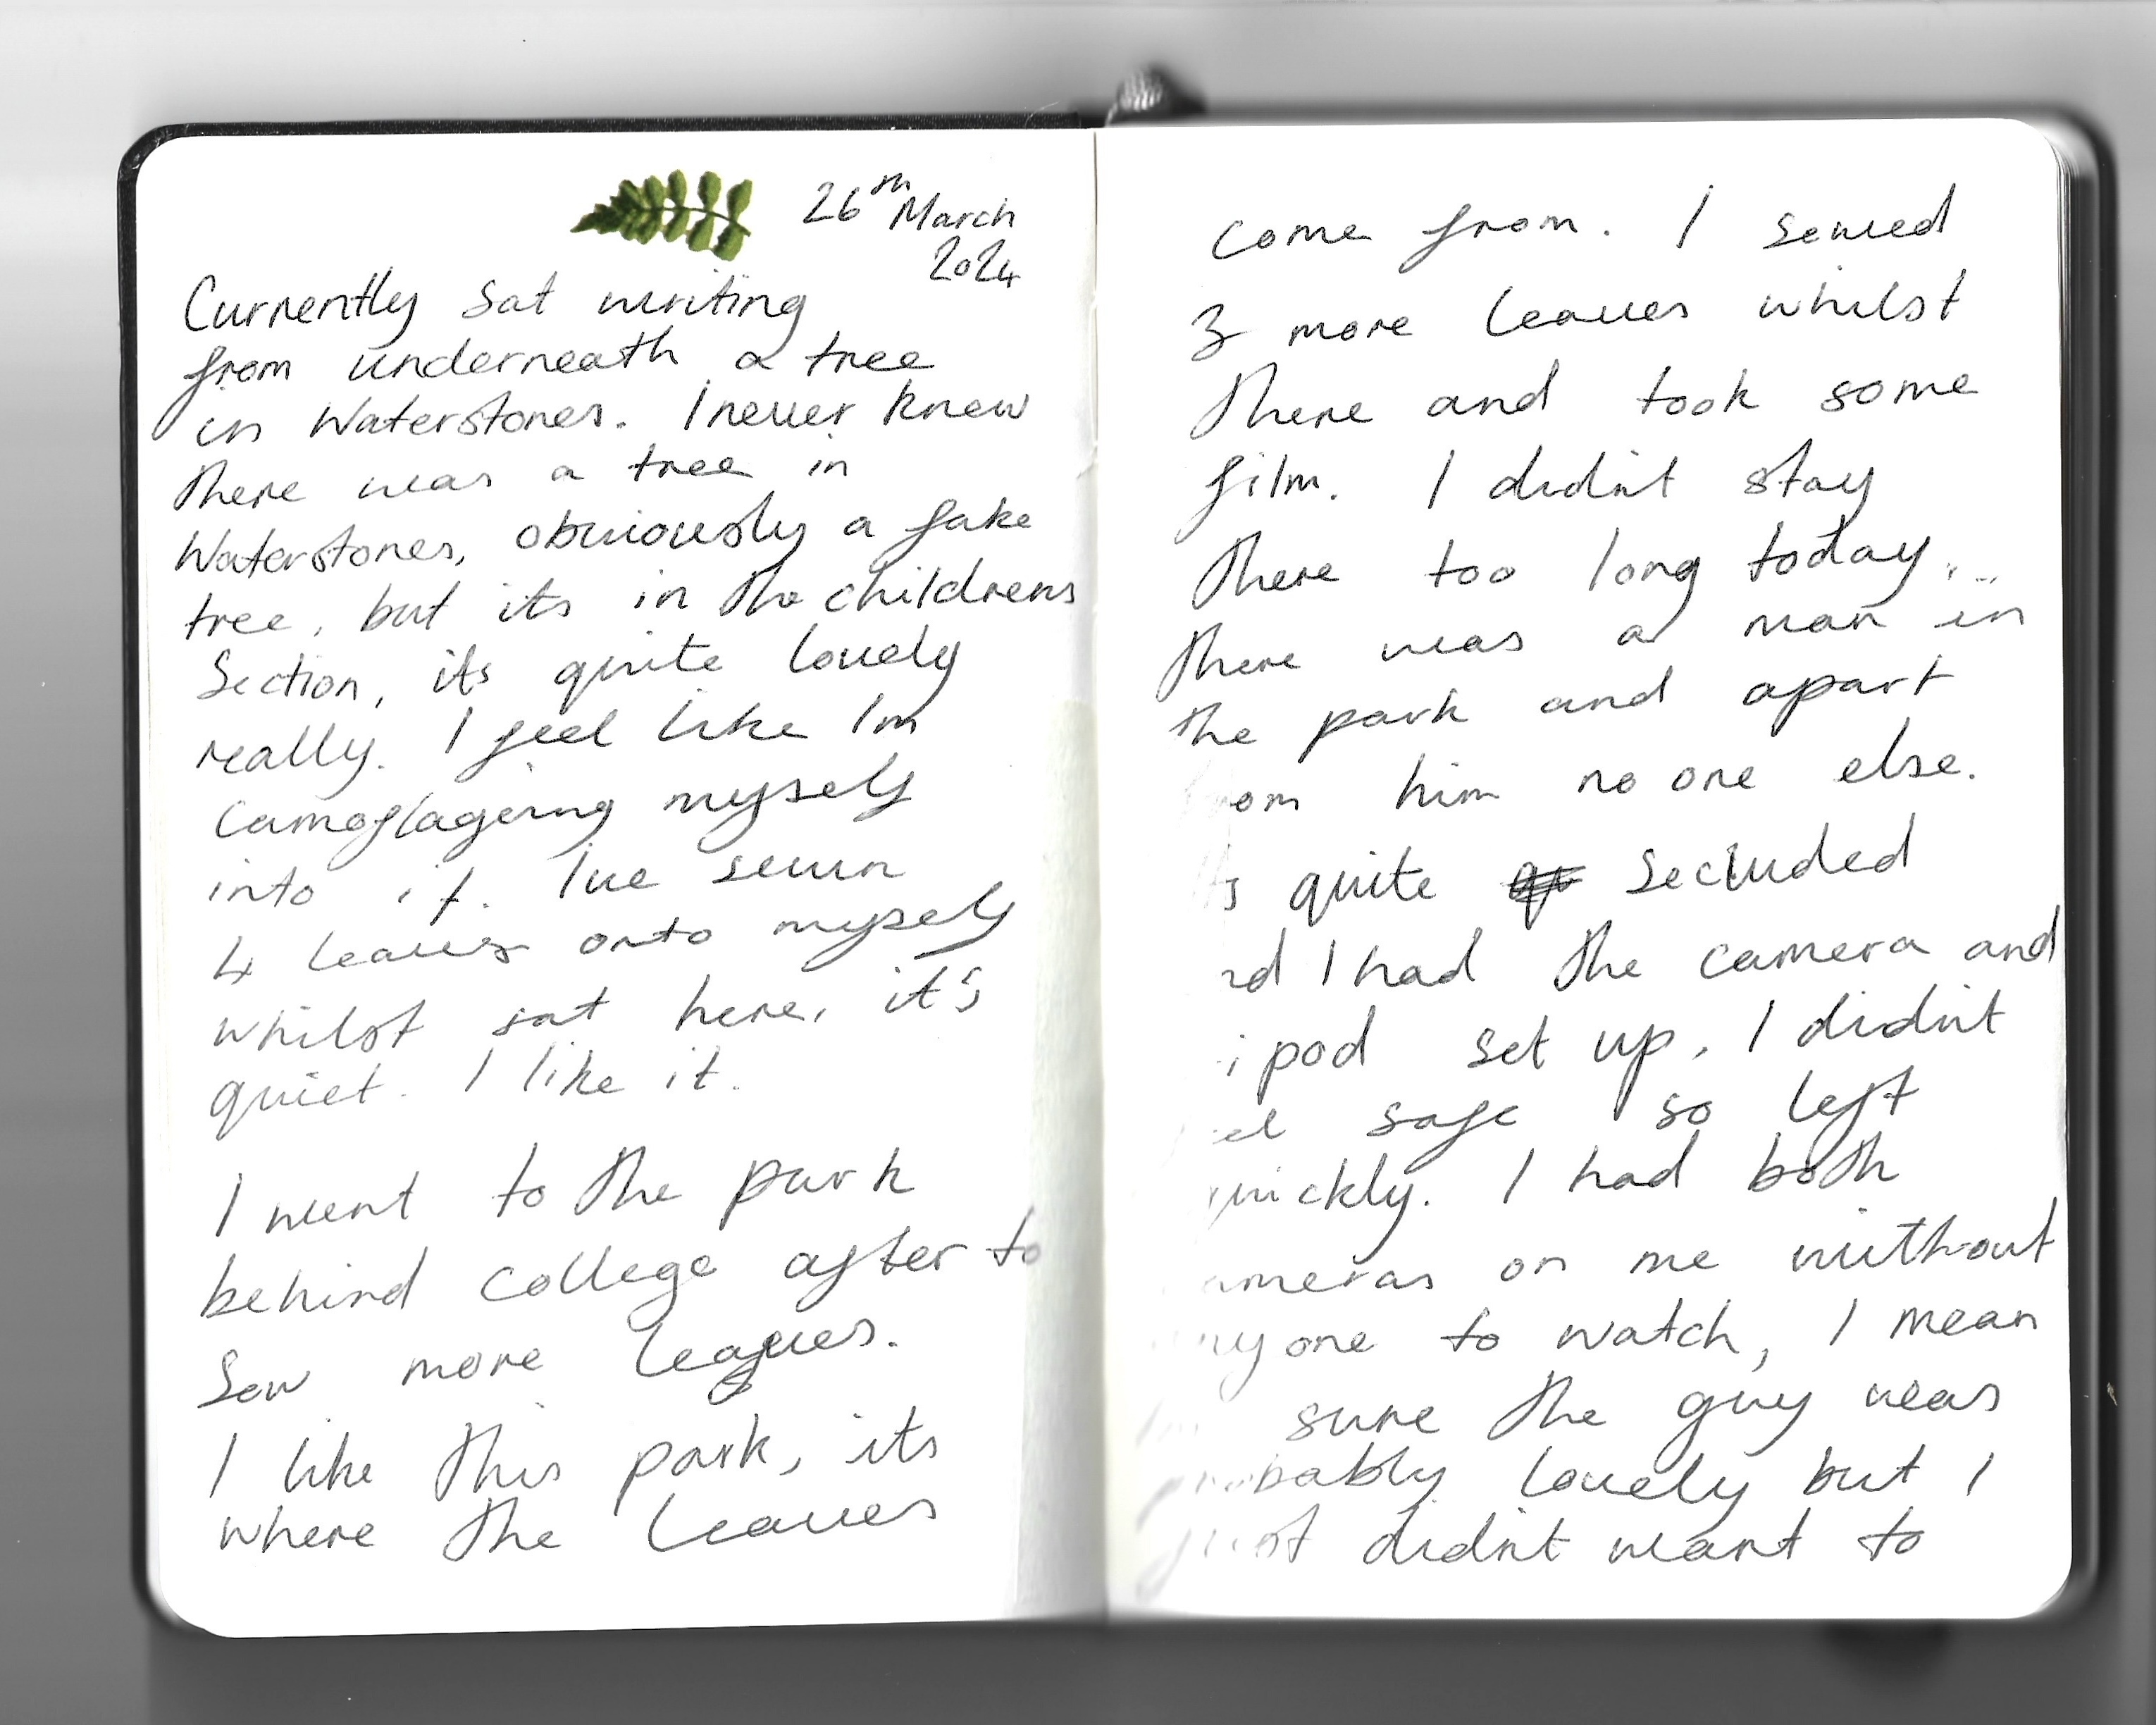 26th March
2024
Currently sat writing
from underneath a tree
in Waterstones. I never knew
there was a tree in
Waterstones, obviously a fake
tree, but its in the childrens
Section, its quite lovely
really. I feel like Im
camoflagering myself
into it. Ive sewn
4 leaves onto myself
whilst sat here, it's
quiet. I like it.
I went to the park
behind college after to
Sew more leaves.
I like this park, its
where the leaves
come from. I sewed
3 more leaves whilst
there and took some
film. I didn't stay
there too long today...
there was a man in
the park and apart
from him no one else.
Its quite secluded
and I had the camera and
tripod set up, I didn't
feel safe so left
quickly. I had both
cameras on me without
anyone to watch, I mean
sure the guy was
probably lovely but I
just didn't want to